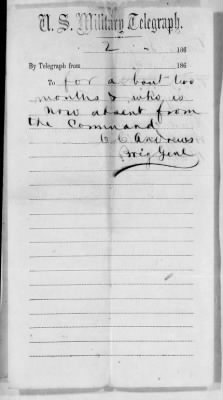 U. S. Military Telegraph.
2 186
By Telegraph from 186
To for about two
months & who is
now absent from
the Command
C. C. Andrews
Brig Genl